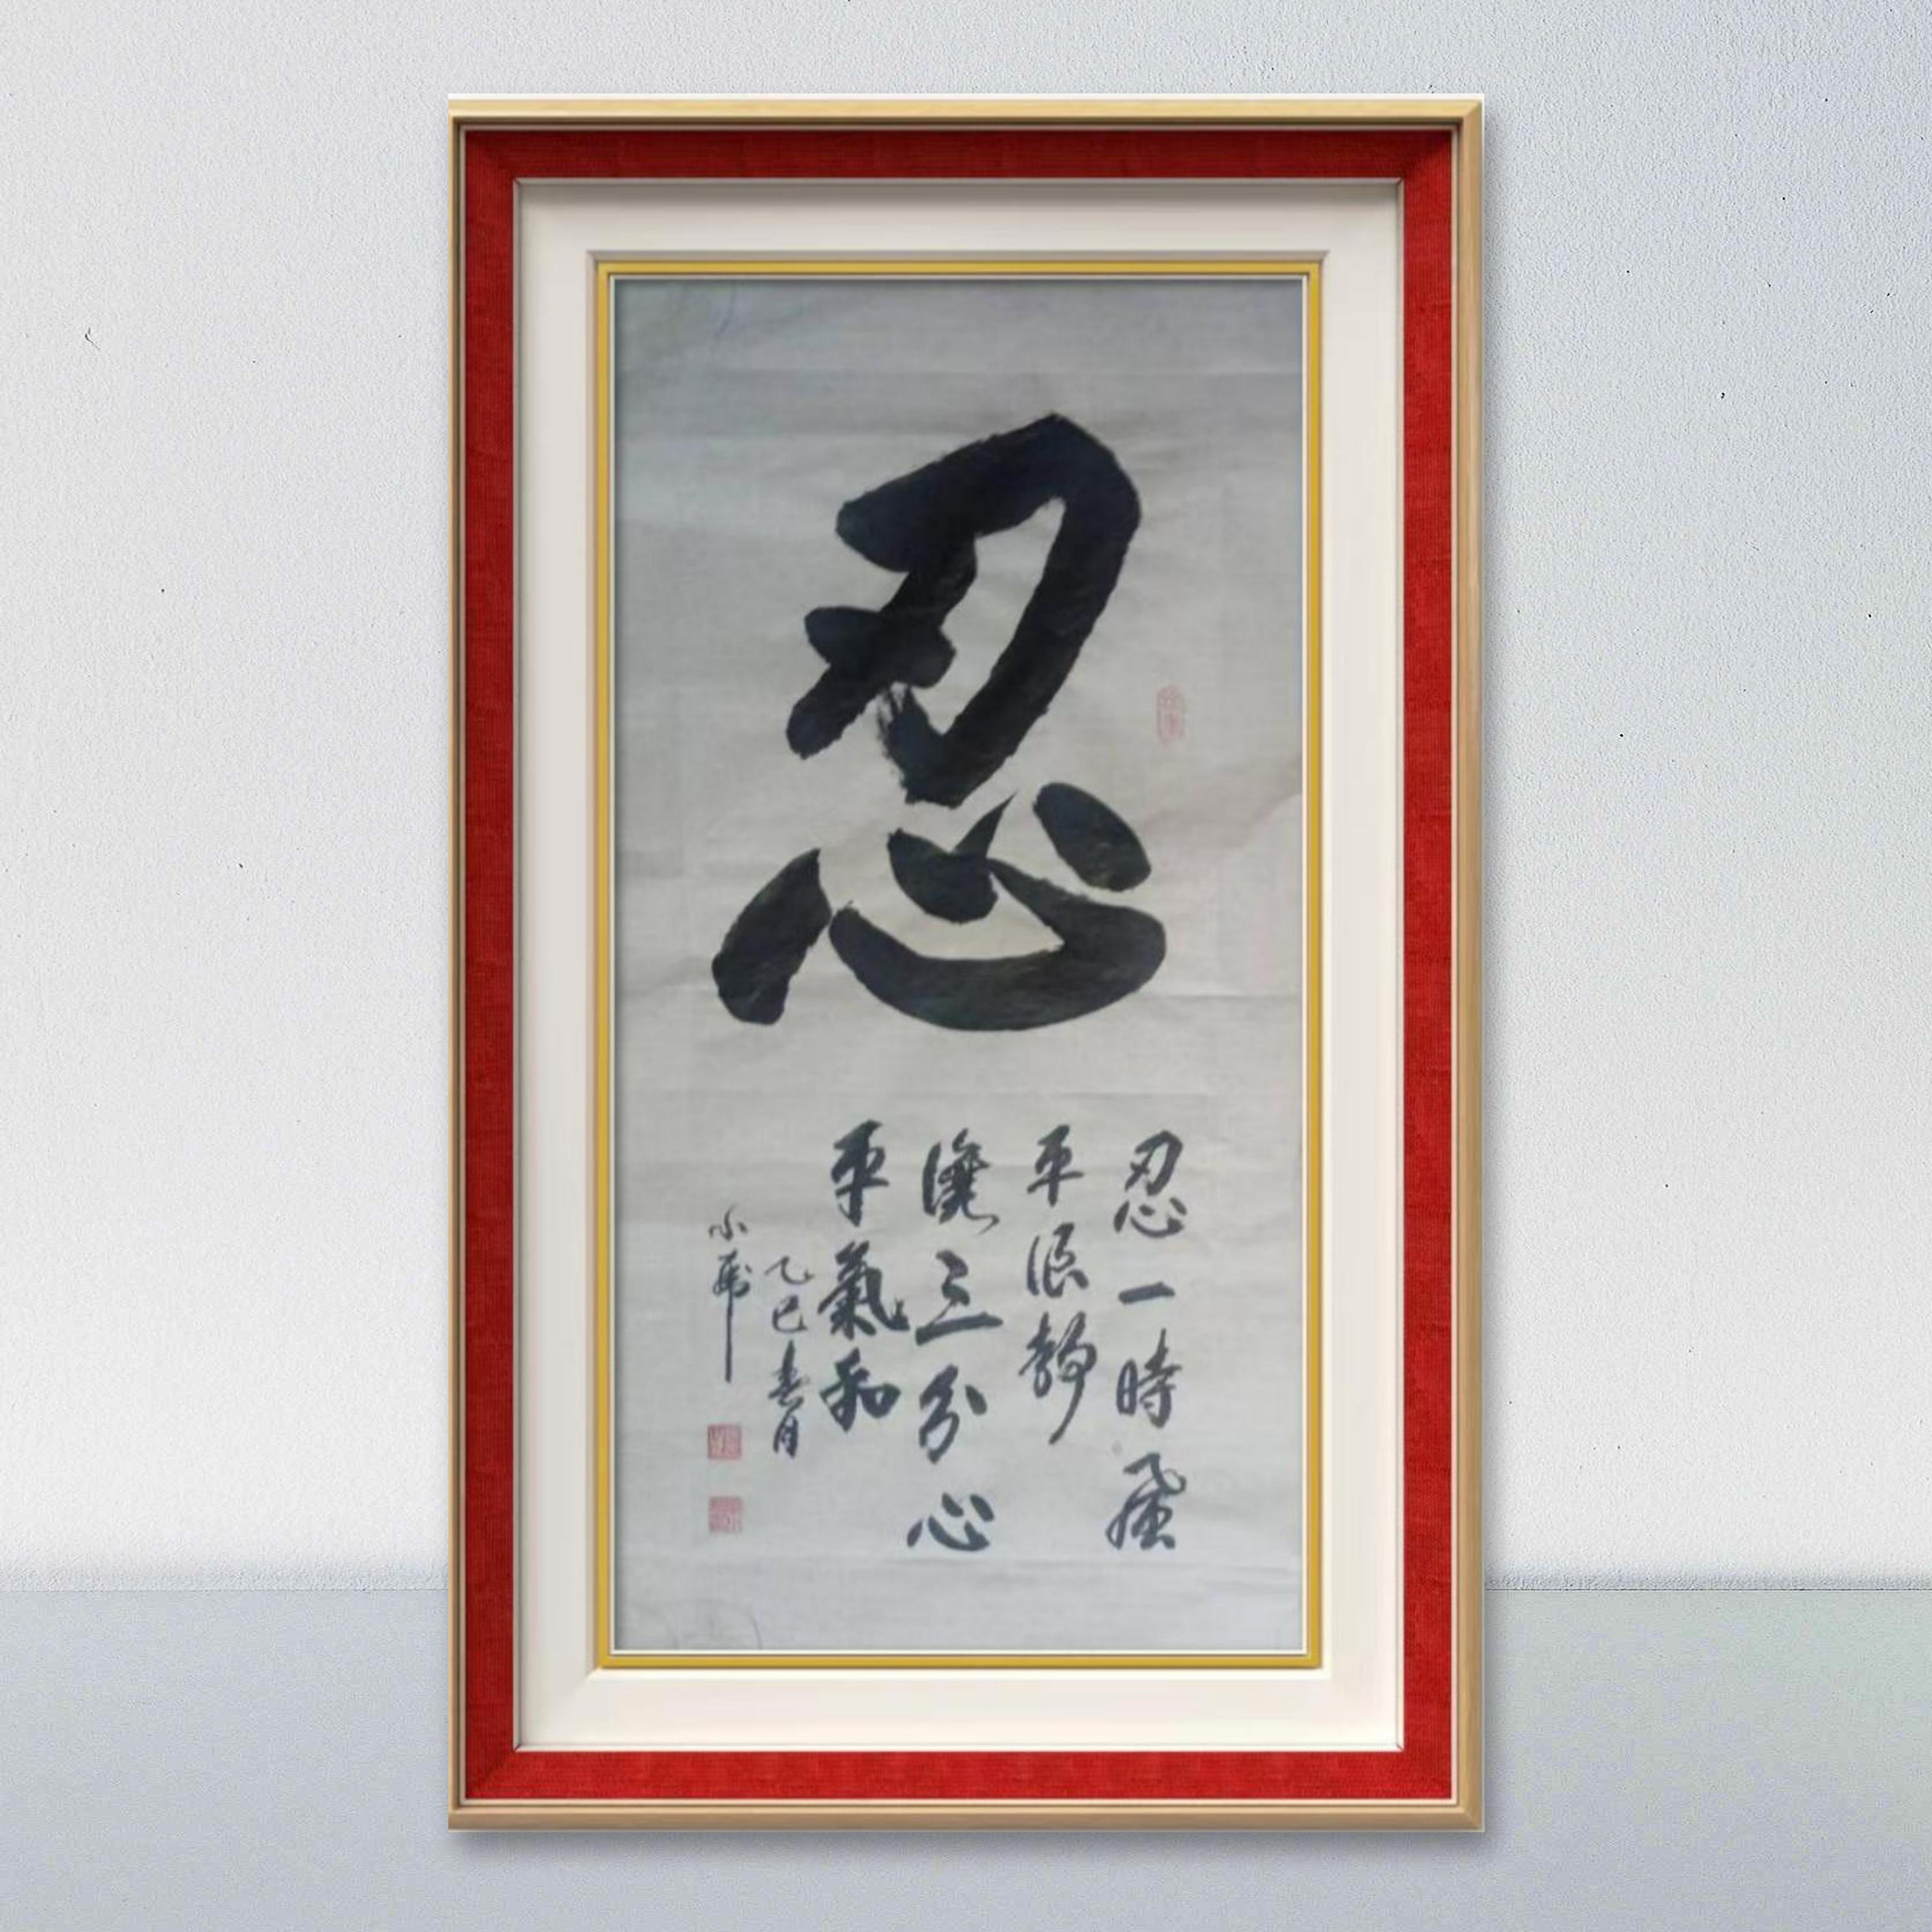 忍
忍一時風
平浪靜
讓三分心
平氣和
乙巳春月
小